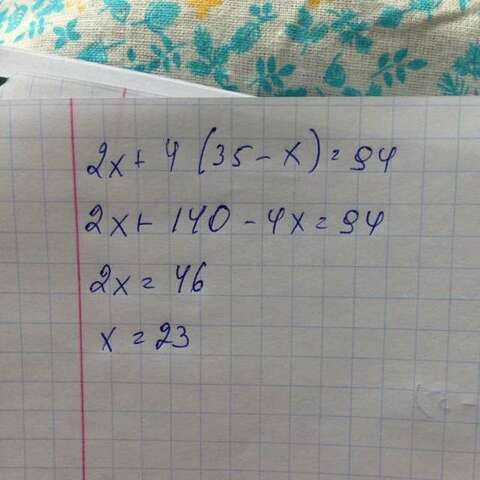 2x + 4 (35 - x) = 94
2x + 140 - 4x = 94
2x = 46
x = 23